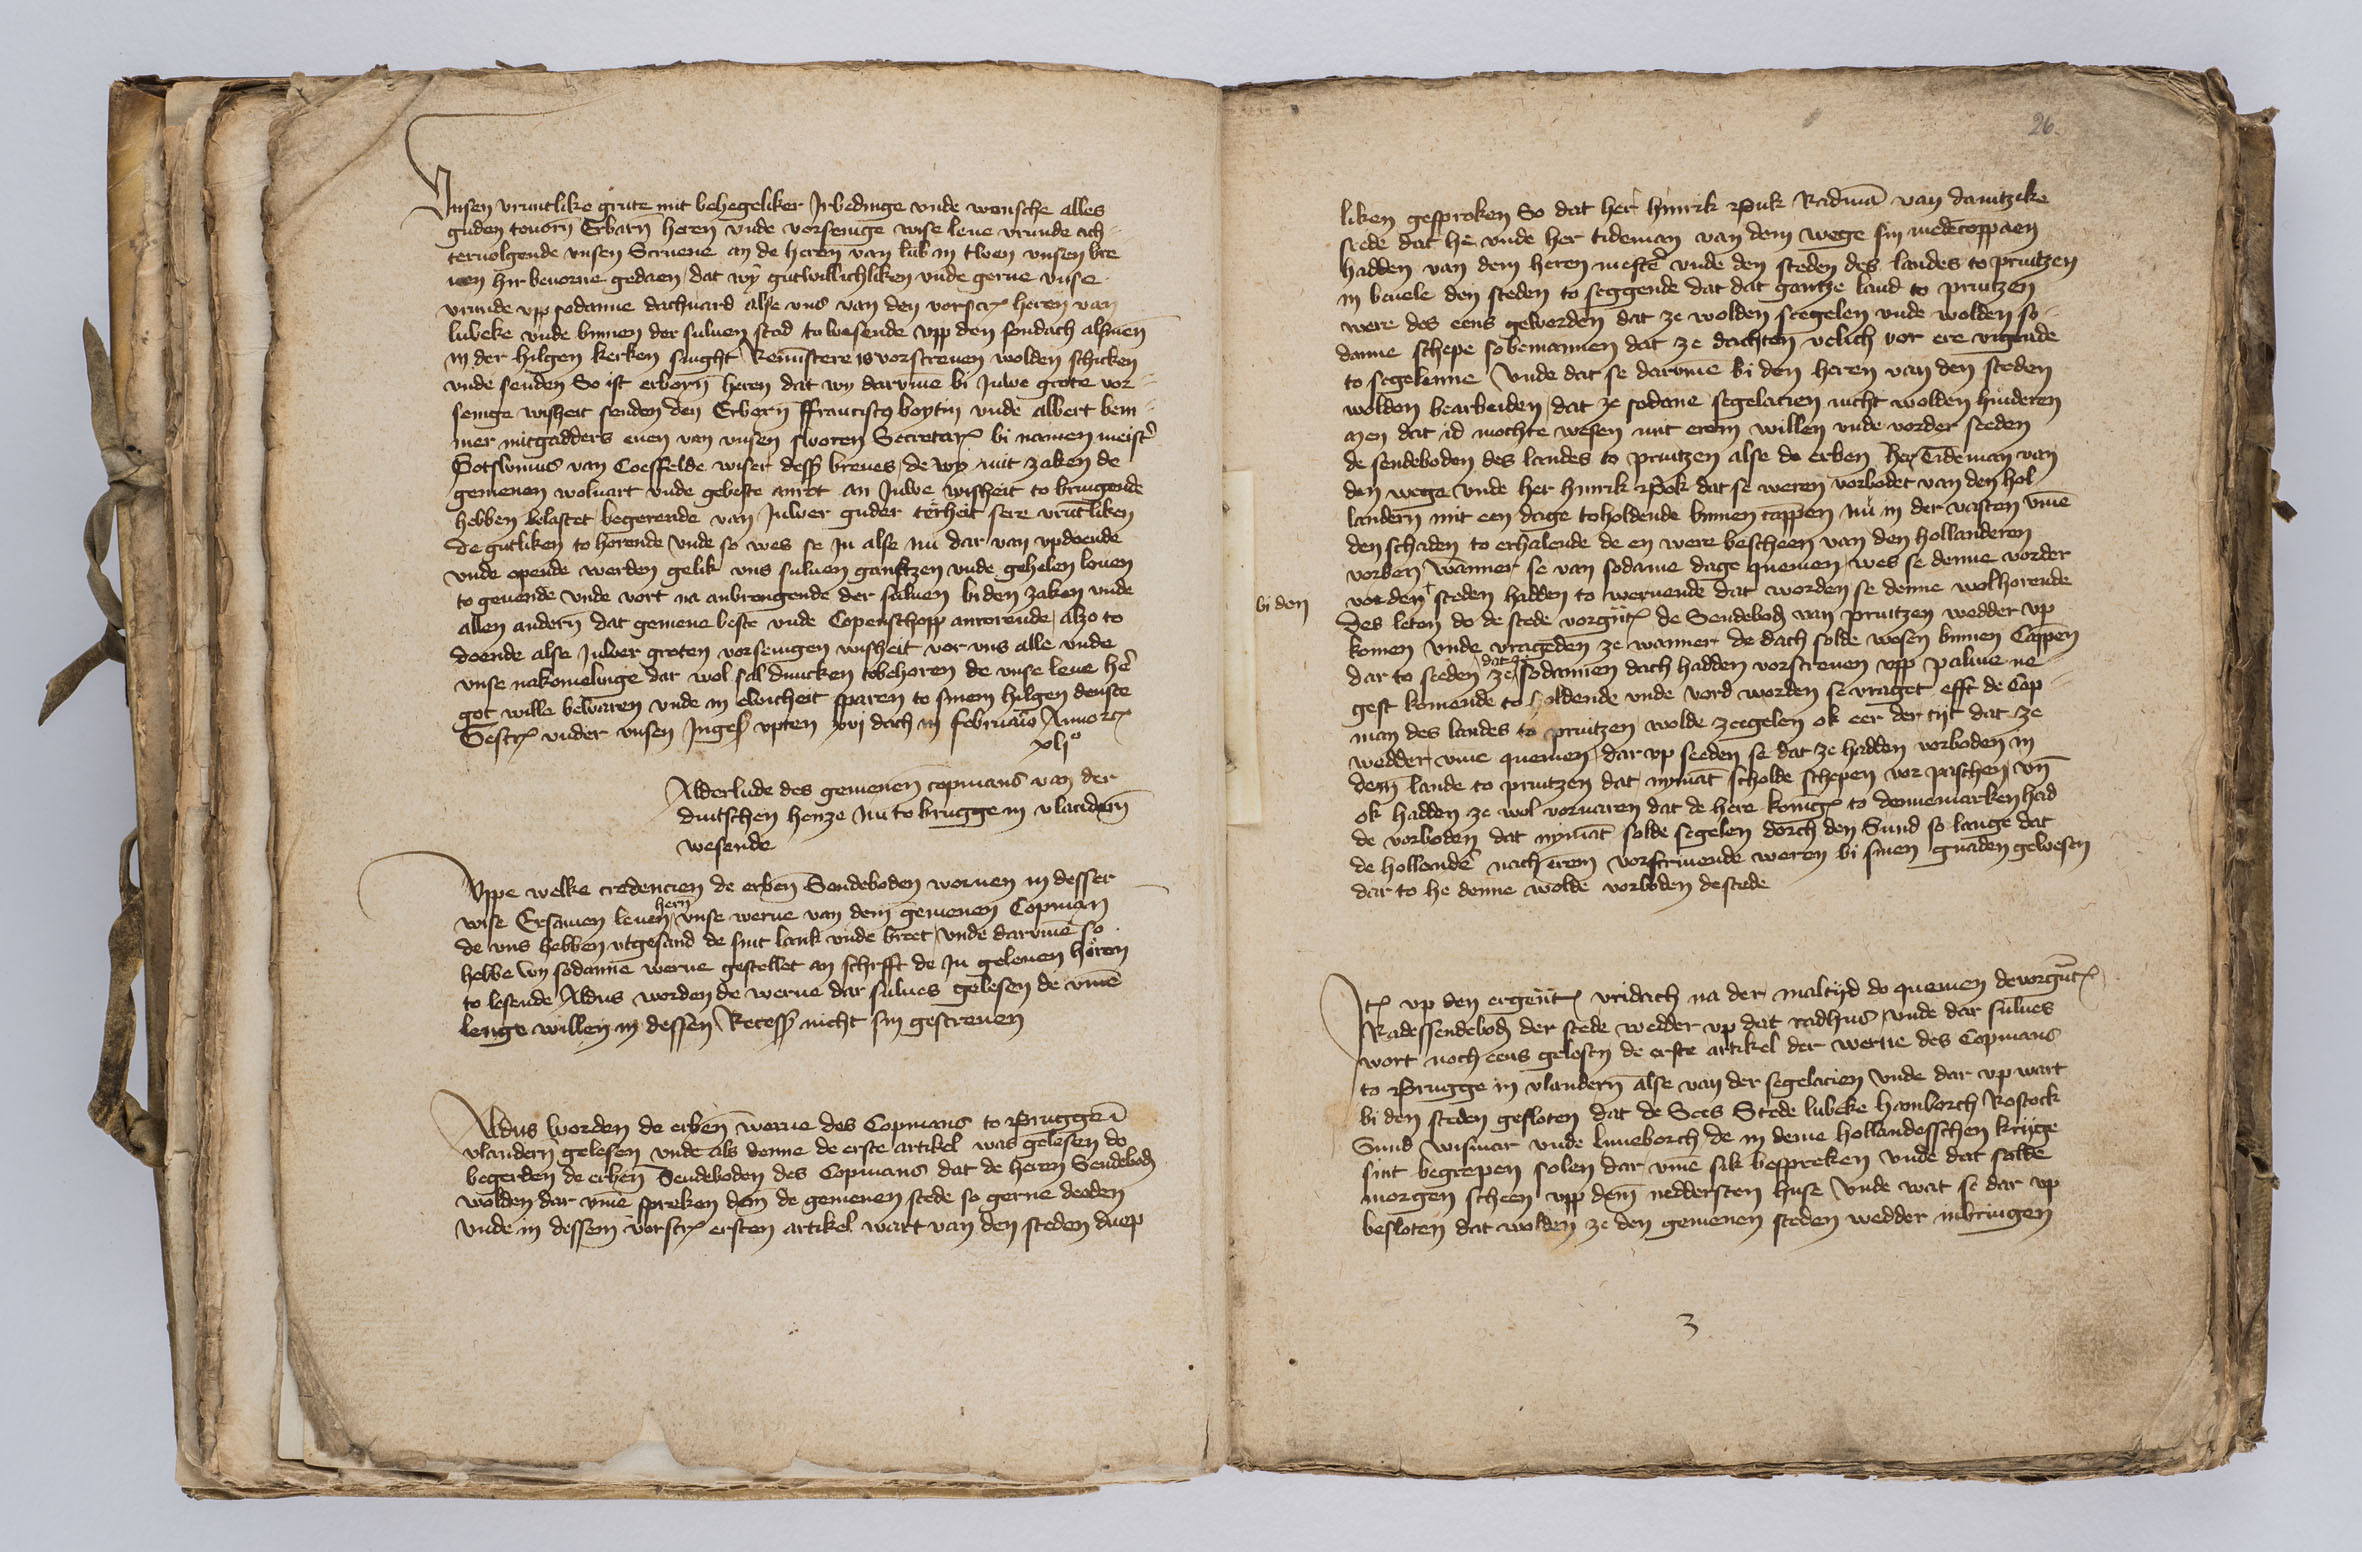 Vnsen vruntlike grute mit behegeliker Irbedinge vnde wensche alles
guden touorn Erbarn heren vnde vorsenige wise leue vrunde ach-
teruolgende vnsen Scriuene an de heren van lub in twen vnsen bre
uen hir beuorne gedaen dat wy gutwillichliken vnde gerne vnse
vrunde vpp sodanne dachuard alse vns van den vorscr heren van
lubeke vnde bynnen der suluen stad to wesende vpp den sondach alsmen
in der hilgen kerken singhet Reministere is vorscreuen wolden schicken
vnde senden So ist erborn heren dat wy darvme bi Juwe grote vor-
senige wisheit senden den Erborn ffranciscq boytin vnde albert bem-
mer mitgadders enen van vnsen sworen Secretar bi namen meist
Gotswinus van Coesfelde wiser dess breues de wy mit zaken de
gemenen woluart vnde gebeste anret an Juwe wisheit to bringende
hebben belastet begerende van Juwer guder terheit sere vrutliken
de gutliken to horende vnde so wes se Ju alse nu dar van vpdoende
vnde opende werden gelik vns suluen gansszen vnde gehelen louen
to geuende vnde vort na anbrengende der suluen bi den zaken vnde
allen andern dat gemene beste vnde Copenschopp anrorende alzo to
doende alse Juwer groten vorsenigen wisheit vor vns alle vnde
vnse nakomelinge dar wol sal duncken tobehoren de vnse leue he
got wille bewaren vnde in ewicheit sparen to sinem hilgen denste
Gescr vnder vnsen Inges vpten xvj dach in februaio Anno rc
xlj°
Alderlude des gemenen copmans van der
dutschen henze nu to brugge in vlandern
wesende
Vppe welke credencien de erben Sendeboden woruen in desser
hern
wise Ersamen leuen vnse werue van dem gemenen Copman
de vns hebben vtgesand de sint lank vnde breet vnde darvme so
hebbe wy sodanne werue gestellet an schrfft de Ju geleuen horen
to lesende Aldus worden de werue dar sulues gelesen de vme
lenge willen in dessen Recess nicht sin gescreuen
Aldus worden de erben werue des Copmans to Brugge i
vlandern gelesen vnde als denne de erste artikel was gelesen do
begerden de erben Sendeboden des Copmans dat de heren Sendebod
wolden dar vme spreken dem de gemenen stede so gerne deden
vnde in dessem vorscr ersten artikel wart van den steden duep
26.
liken gesproken So dat her hinrik Buk Radma van dantzike
sede dat he vnde her tideman van dem wege sin medecoppaen
hadden van dem heren meste vnde den steden des landes to prutzen
in beuele den steden to seggende dat dat gantze land to prutzen
were des eens geworden dat ze wolden seegelen vnde wolden so-
danne schepe sobemannen dat ze dachten velich vor ere vigende
to segelenne vnde dat se darvme bi den heren van den steden
wolden bearbeiden dat ze sodane segelacien nicht wolden hinderen
men dat id mochte wesen mit erem willen vnde vorder seeden
de sendeboden des landes to prutzen alse de erben her Tideman van
den wege vnde her hinrik Bok dat se weren vorbodet van den hol-
landern mit een dage toholdende bynnen cappen nu in der vasten vme
den schaden to erhalende de en were bescheen van den hollanderen
vorben wanner se van sodanne dage quemen wes se denne vorder
bi den
vor den steden hadden to weruende dat worden se denne wolhorende
Des leten do de stede vorgut de Sendebod van prutzen wedder vp
komen vnde vrageden ze wanner de dach solde wesen bynnen Cappen
dat ze
dar to seeden ze sodannen dach hadden vorscreuen vpp palme ne-
gest komende to holdende vnde vord worden se vraget efft de Cop-
man des landes to prutzen wolde zeegelen ok eer der tijt dat ze
wedder vme quemen dar vp seeden se dat ze hadden vorboden in
dem lande to prutzen dat nymat scholde schepen vor paschen vn
ok hadden ze wol voruaren dat de here koning to dennemarken had
de vorboden dat nymat solde segelen dorch den Sund so lange dat
de hollande nach erem vorscriuende weren bi sinen gnaden gewesen
dar to he denne wolde vorboden destede
It vp den ergeut vridach na der maltijd do quemen devorgut
Radessendebod der stede wedder vp dat radhus vnde dar sulues
wort noch eens gelesen de erste artikel der werue des Copmans
to Brugge in vlandern alse van der segelacien vnde dar vp wart
bi den steden gesloten dat de Sees Stede lubeke hamborch Rostock
Sund wismar vnde luneborch de in deme hollandesschen krijge
sint begrepen solen dar vme sik bespreken vnde dat salde
morgen scheen vpp dem neddersten huse vnde wat se dar vp
besloten dat wolden ze den gemenen steden wedder inbringen
3